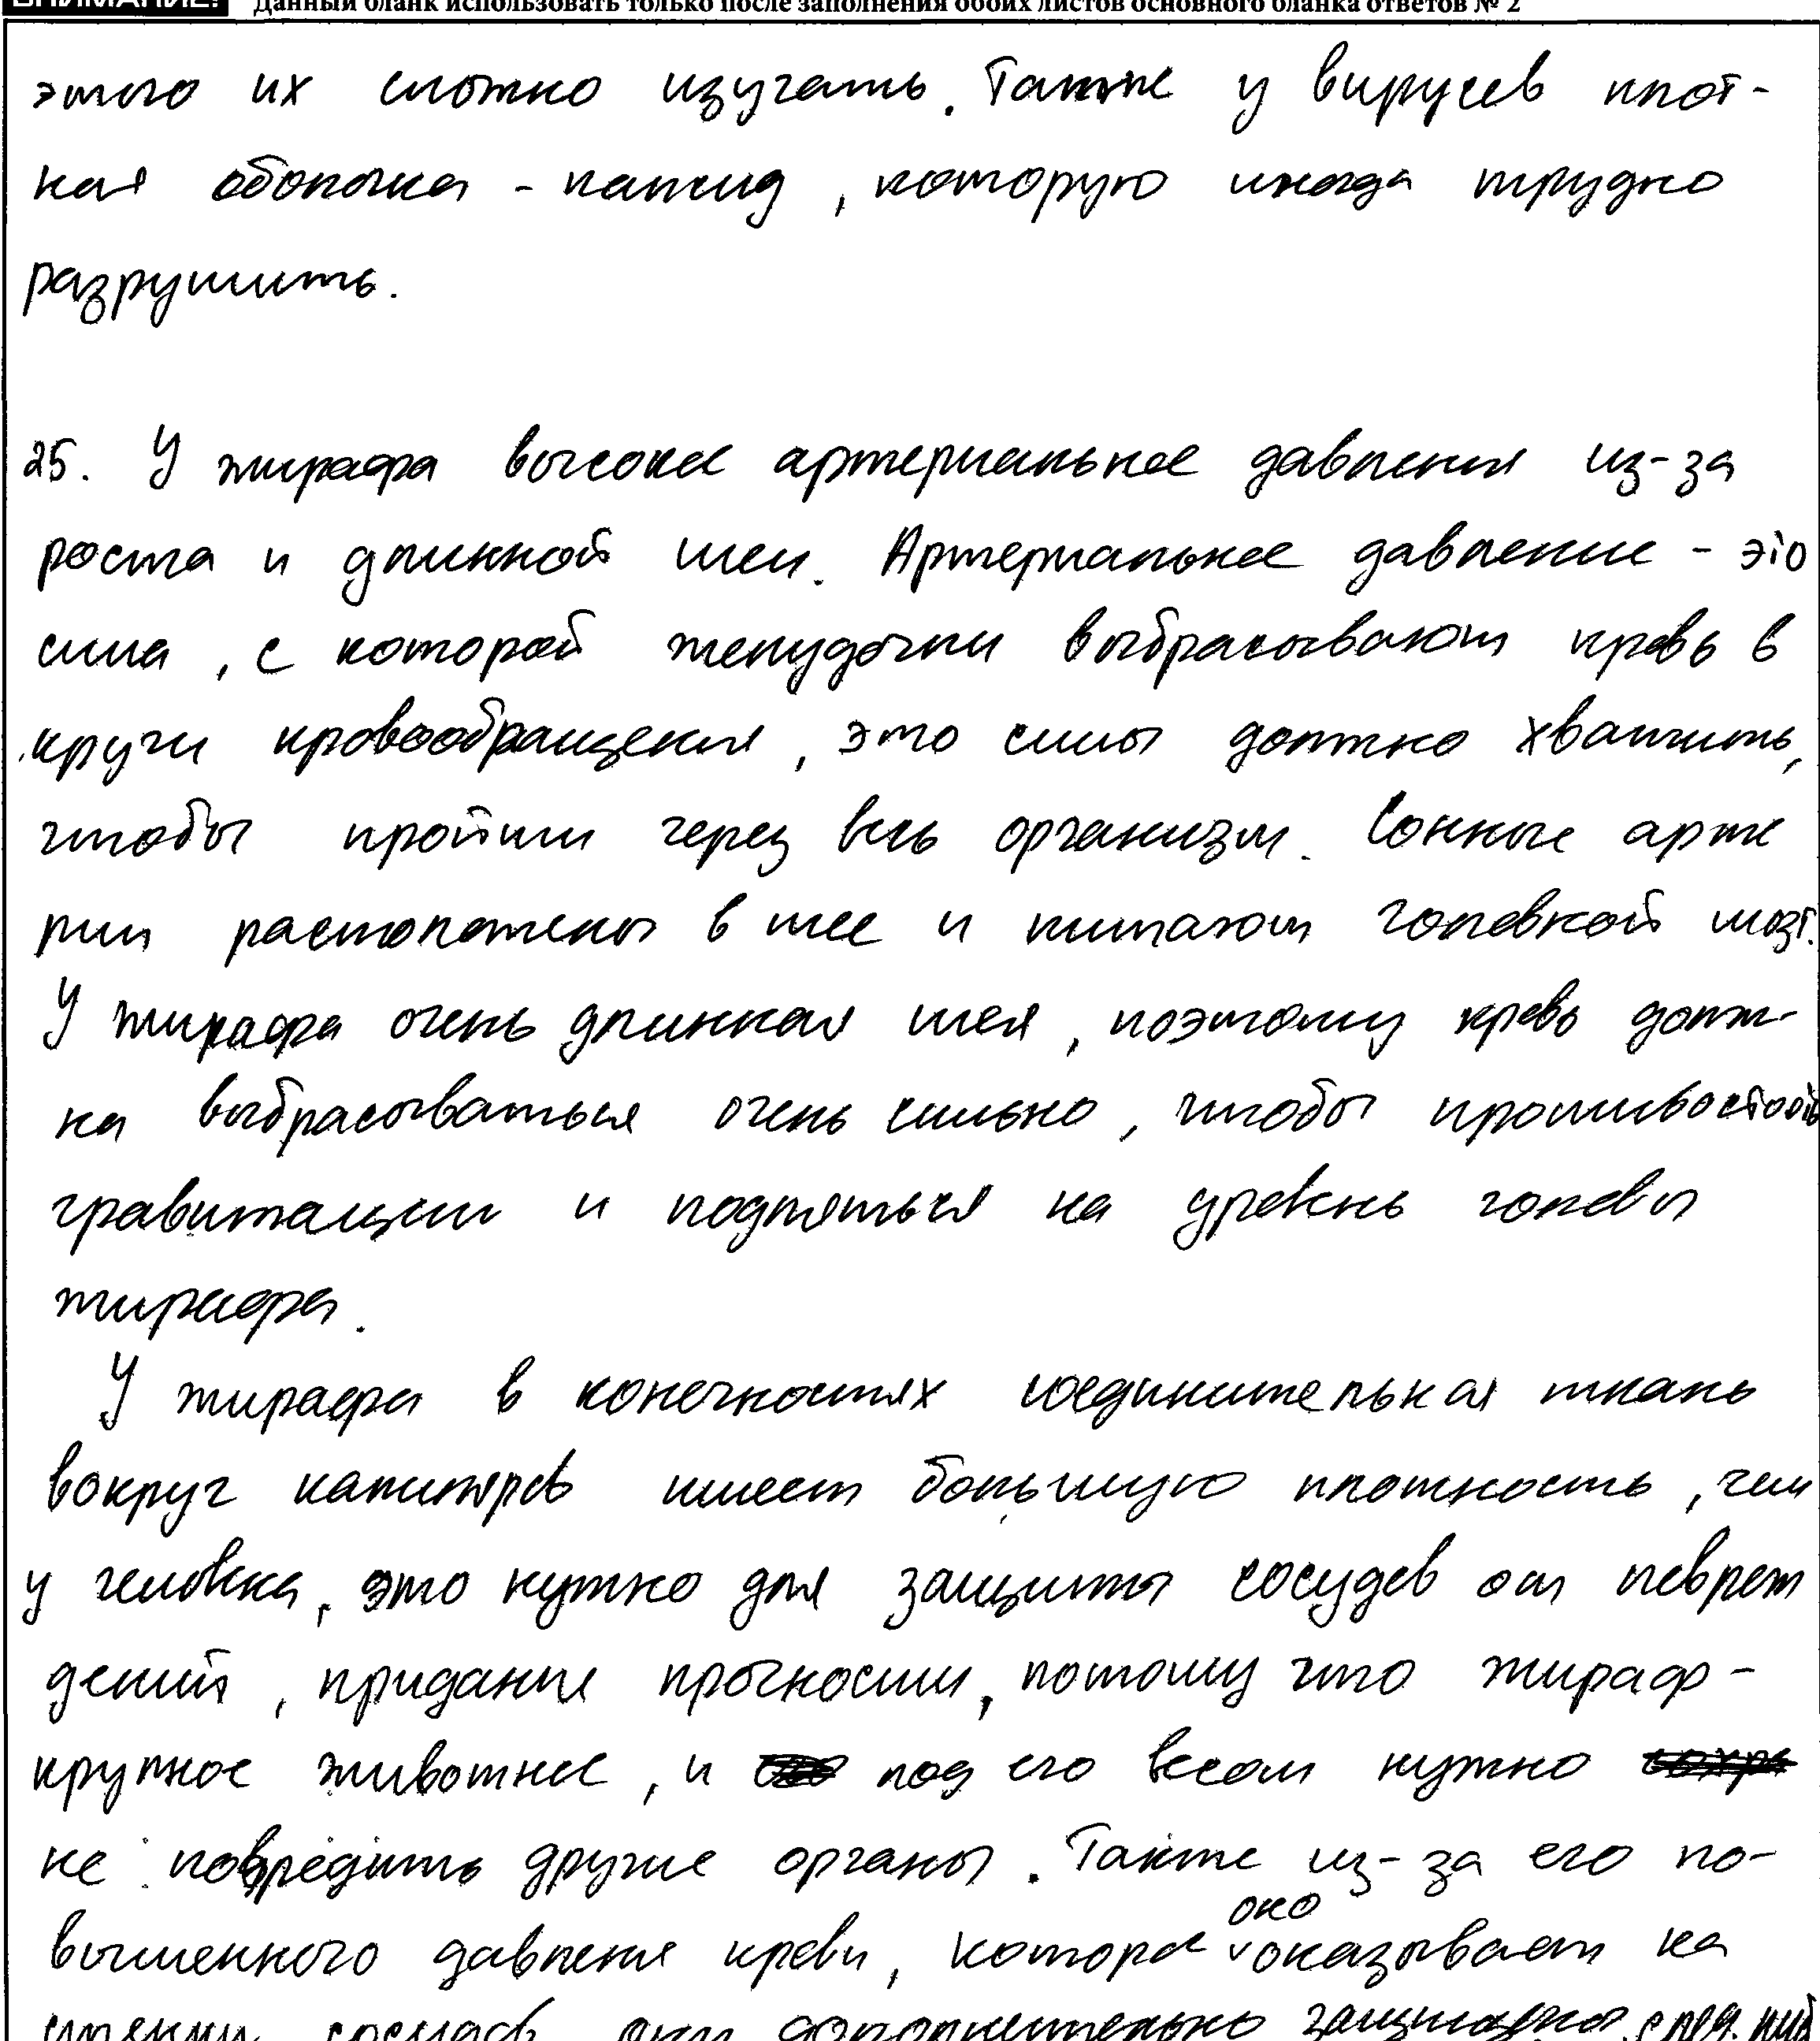 ВНИМАНИЕ! Данный бланк использовать только после заполнения обоих листов основного бланка ответов № 2
этого их сложно изучать. Также у вирусов плот-
ная оболочка - капсид, которую иногда трудно
разрушить.
25. У жирафа высокое артериальное давления из-за
роста и длинной шеи. Артериальное давление - это
сила, с которой желудочки выбрасывают кровь в
круги кровообращения, это силы должно хватить,
чтобы пройти через весь организм. Сонные арте
рии расположены в шее и питают головной мозг.
У жирафа очень длинная шея, поэтому кровь долж-
на выбрасываться очень сильно, чтобы противостоять
гравитации и подняться на уровень головы
жирафа.
У жирафа в конечностях соединительная ткань
вокруг капиляров имеет большую плотность, чем
у человека, это нужно для защиты сосудов от повреж
дений, придание прочности, потому что жираф -
крупное животное, и под его весом нужно
не повредить другие органы. Также из-за его по-
вышенного давления крови, которое оно оказывает на
стенки сосудов они дополнительно